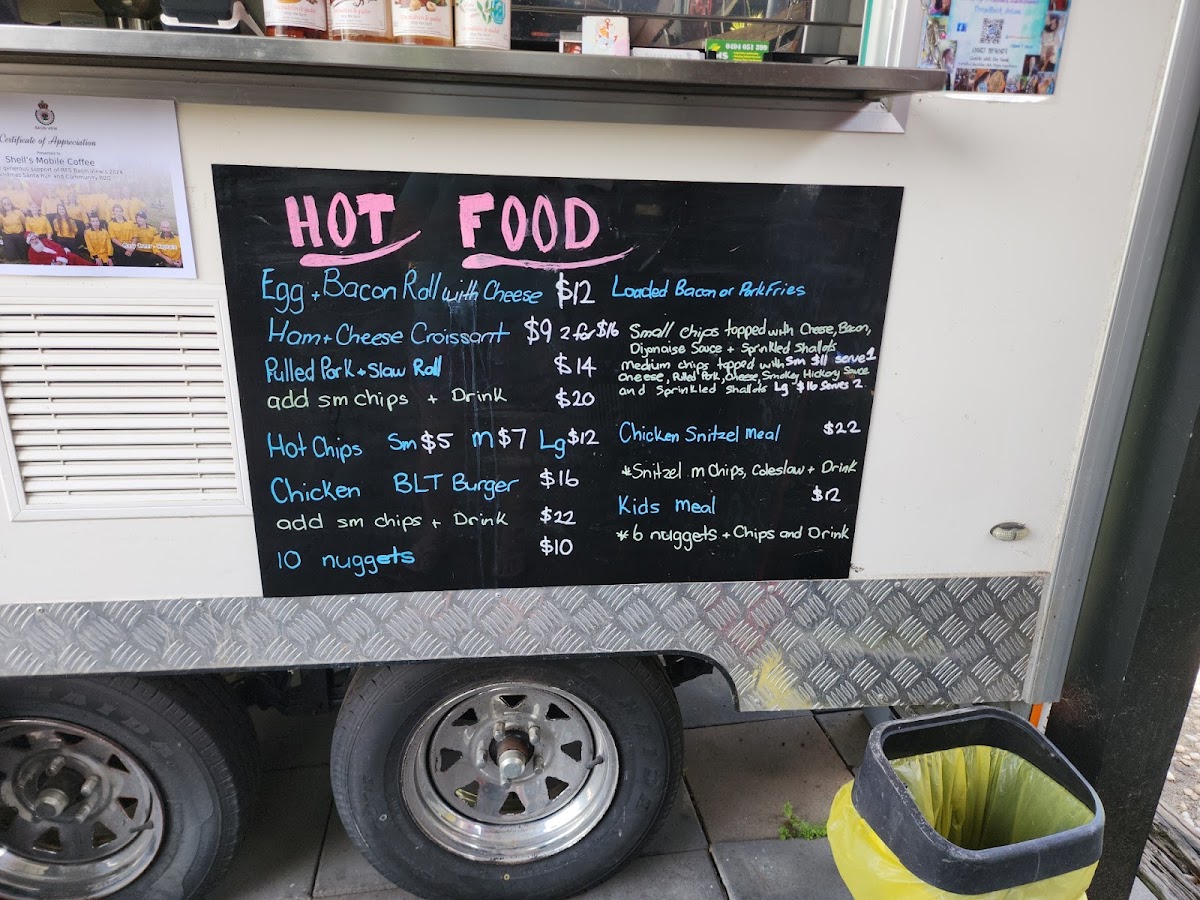 0404 051 399
Certificate of Appreciation
Shell's Mobile Coffee
HOT FOOD
Egg + Bacon Roll with Cheese $12
Ham + Cheese Croissant $9 2 for $16
Pulled Pork + Slaw Roll $14
add sm chips + Drink $20
Hot Chips Sm $5 m $7 Lg $12
Chicken BLT Burger $16
add sm chips + Drink $22
10 nuggets $10
Loaded Bacon or Pork Fries
Small chips topped with Cheese, Bacon,
Dijonaise Sauce + Sprinkled Shallots
medium chips topped with Sm $11 serve 1
cheese, Pulled Pork, Cheese, Smokey Hickory Sauce
and Sprinkled Shallots Lg $16 Serves 2
Chicken Snitzel meal $22
*Snitzel m Chips, Coleslaw + Drink
Kids meal $12
*6 nuggets + Chips and Drink